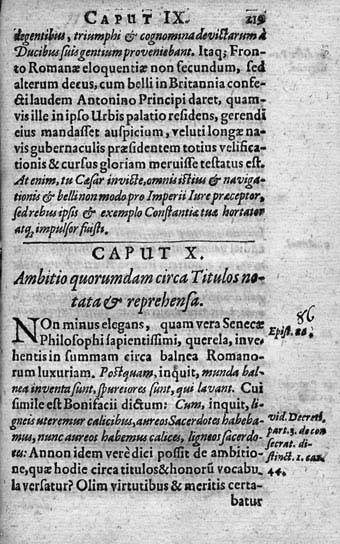 CAPUT IX. 219
degentibus, triumphi & cognomina devictarum à
Ducibus suis gentium proveniebant. Itaq; Fron-
to Romanæ eloquentiæ non secundum, sed
alterum decus, cum belli in Britannia confe-
cti laudem Antonino Principi daret, quam-
vis ille in ipso Urbis palatio residens, gerendi
eius mandasset auspicium, veluti longæ na-
vis gubernaculis præsidentem totius velifica-
tionis & cursus gloriam meruisse testatus est.
At enim, tu Cæsar invicte, omnis istius & naviga-
tionis & belli non modo pro Imperii Iure præceptor,
sed rebus ipsis & exemplo Constantiæ tuæ hortator
atq, impulsor fuisti.
CAPUT X.
Ambitio quorumdam circa Titulos no-
tata & reprehensa.
NOn minus elegans, quam vera Senecæ
Philosophi sapientissimi, querela, inve-
hentis in summam circa balnea Romano-
rum luxuriam. Postquam, inquit, munda bal-
nea inventa sunt, spurciores sunt, qui lavant. Cui
simile est Bonifacii dictum: Cum, inquit, li-
gneis uteremur calicibus, aureos Sacerdotes habeba-
mus, nunc aureos habemus calices, ligneos sacerdo-
tes: Annon idem verè dici possit de ambitio-
ne, quæ hodie circa titulos & honorū vocabu-
la versatur? Olim virtutibus & meritis certa-
batur
86
Epist.
vid. Decret.
part. 3. de con
secrat. di-
stinct. 1. cap.
44.